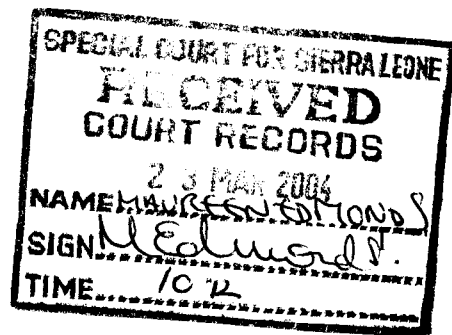 SPECIAL COURT FOR SIERRA LEONE
RECEIVED
COURT RECORDS
23 MAR 2004
NAME MAUREEN EDMONDS
SIGN M Edmonds.
TIME